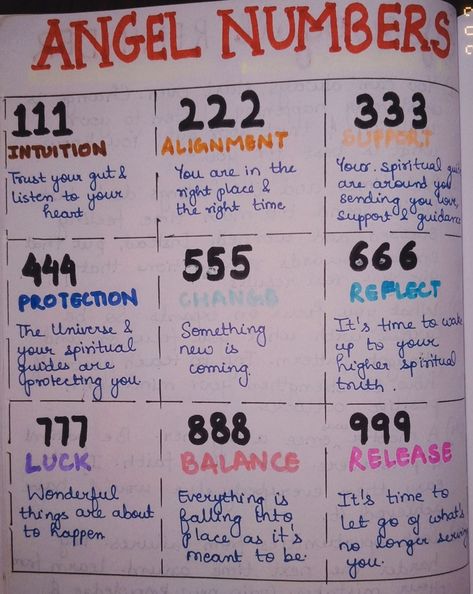 ANGEL NUMBERS
111
INTUITION
Trust your gut &
listen to your
heart
222
ALIGNMENT
You are in the
right place &
the right time
333
SUPPORT
Your spiritual
are around you
sending you love,
support & guidance
444
PROTECTION
The Universe &
your spiritual
guides are
protecting you
555
CHANGE
Something
new is
coming.
666
REFLECT
It's time to
up to your
higher spiritual
truth.
777
LUCK
Wonderful
things are about
to happen
888
BALANCE
Everything is
falling into
place as it's
meant to be.
999
RELEASE
It's time to
let go of what's
no longer
you.